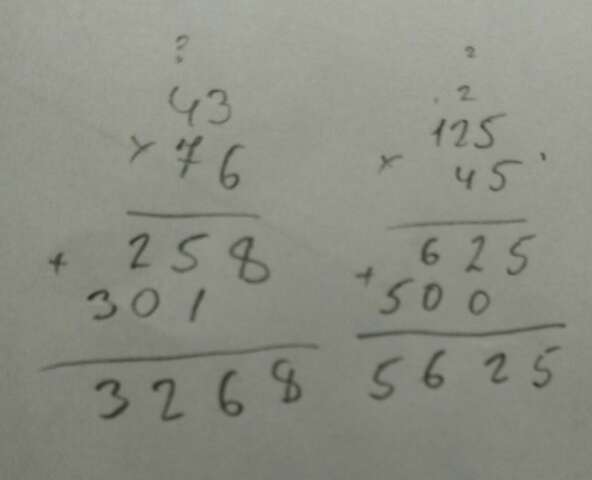 ?
43
× 76
258
+ 301
3268
2
2
125
× 45
625
+ 500
5625